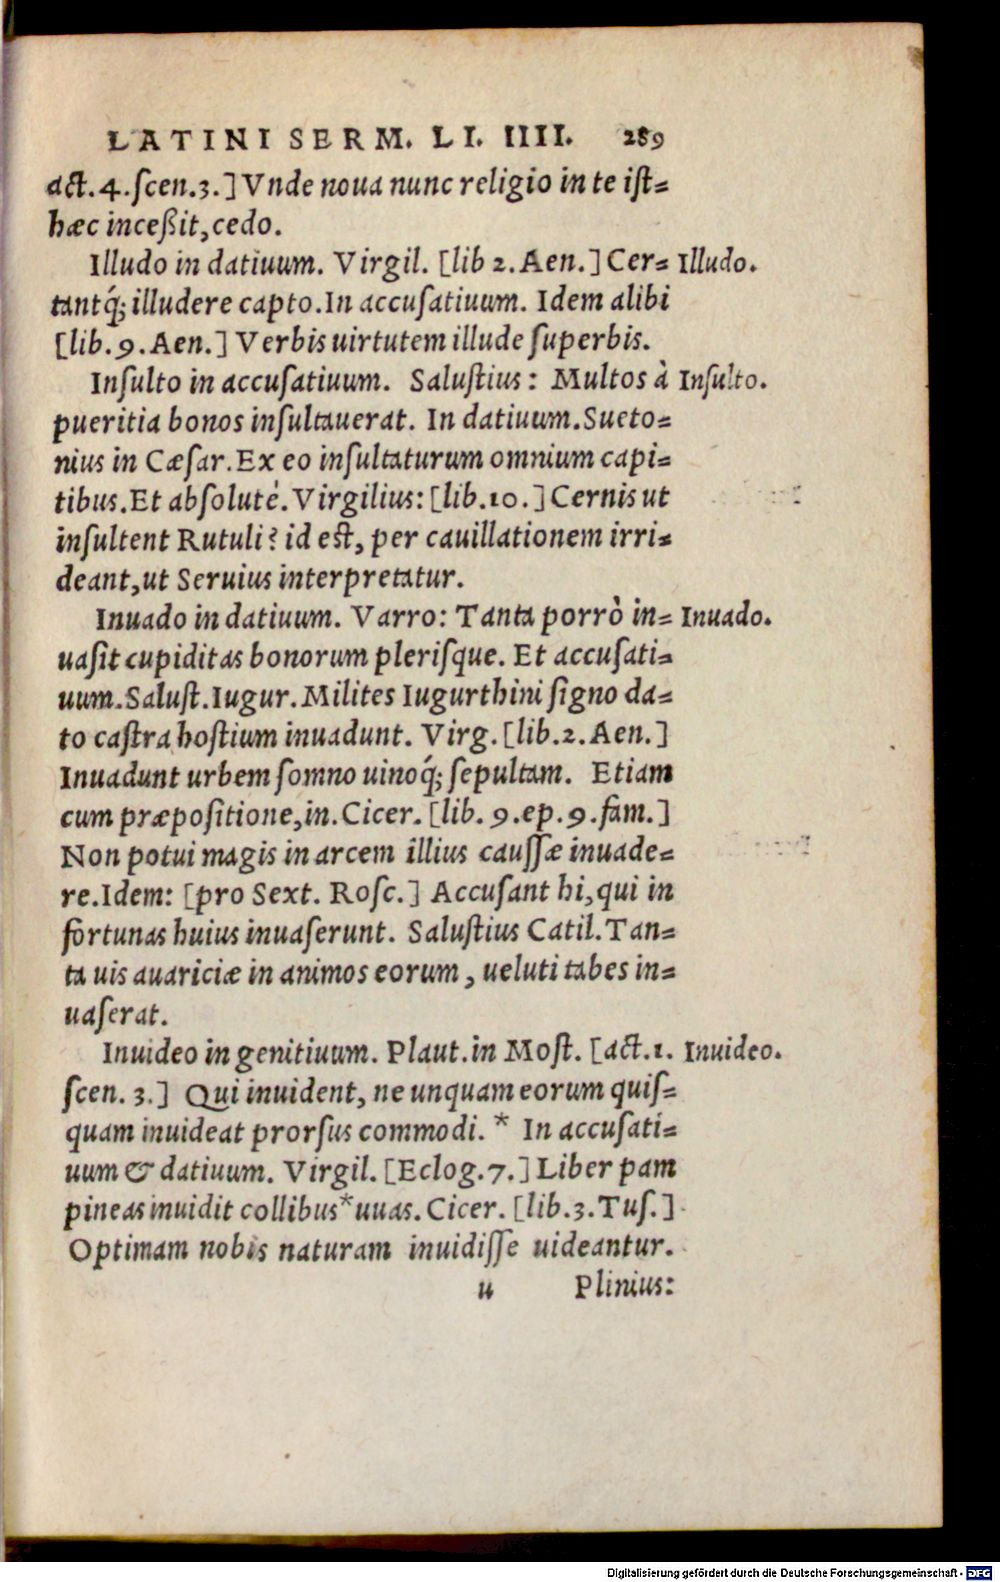 LATINI SERM. LI. IIII. 289
act.4.ſcen.3.] Vnde noua nunc religio in te iſt=
hæc inceßit, cedo.
Illudo in datiuum. Virgil. [lib 2. Aen.] Cer= Illudo.
tantq́; illudere capto. In accuſatiuum. Idem alibi
[lib. 9. Aen.] Verbis uirtutem illude ſuperbis.
Inſulto in accuſatiuum. Saluſtius: Multos à Inſulto.
pueritia bonos inſultauerat. In datiuum. Sueto=
nius in Cæſar. Ex eo inſultaturum omnium capi=
tibus. Et abſolutè. Virgilius: [lib.10.] Cernis ut
inſultent Rutuli? id eſt, per cauillationem irri=
deant, ut Seruius interpretatur.
Inuado in datiuum. Varro: Tanta porrò in= Inuado.
uaſit cupiditas bonorum pleriſque. Et accuſati=
uum. Saluſt. Iugur. Milites Iugurthini ſigno da=
to caſtra hoſtium inuadunt. Virg. [lib.2. Aen.]
Inuadunt urbem ſomno uinoq́; ſepultam. Etiam
cum præpoſitione, in. Cicer. [lib. 9. ep. 9. fam.]
Non potui magis in arcem illius cauſſæ inuade=
re. Idem: [pro Sext. Roſc.] Accuſant hi, qui in
fortunas huius inuaſerunt. Saluſtius Catil. Tan=
ta uis auariciæ in animos eorum, ueluti tabes in=
uaſerat.
Inuideo in genitiuum. Plaut. in Moſt. [act.1. Inuideo.
ſcen. 3.] Qui inuident, ne unquam eorum quiſ=
quam inuideat prorſus commodi. * In accuſati=
uum & datiuum. Virgil. [Eclog. 7.] Liber pam
pineas inuidit collibus* uuas. Cicer. [lib.3. Tuſ.]
Optimam nobis naturam inuidiſſe uideantur.
u Plinius:
Digitalisierung gefördert durch die Deutsche Forschungsgemeinschaft - DFG